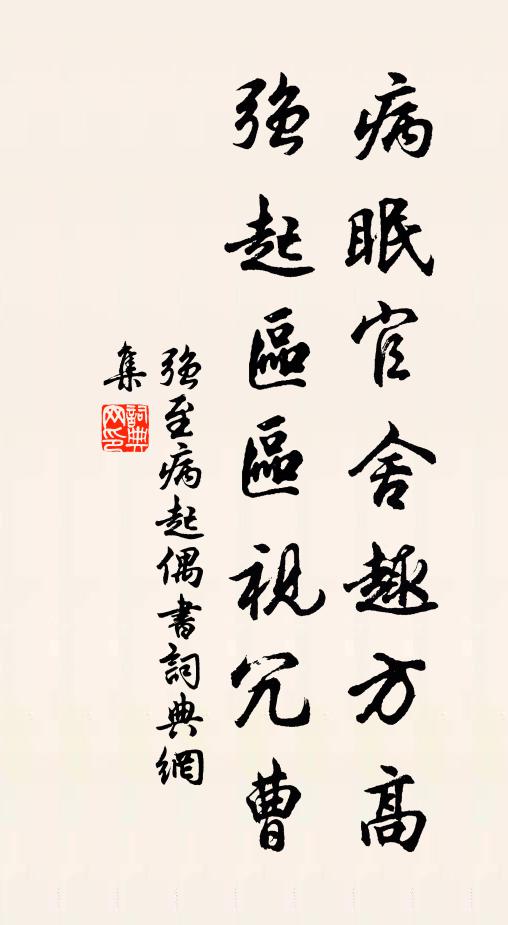 病眠官舍趣方高
强起區區視冗曹
强至病起偶書詞典網
集
詞典
网印